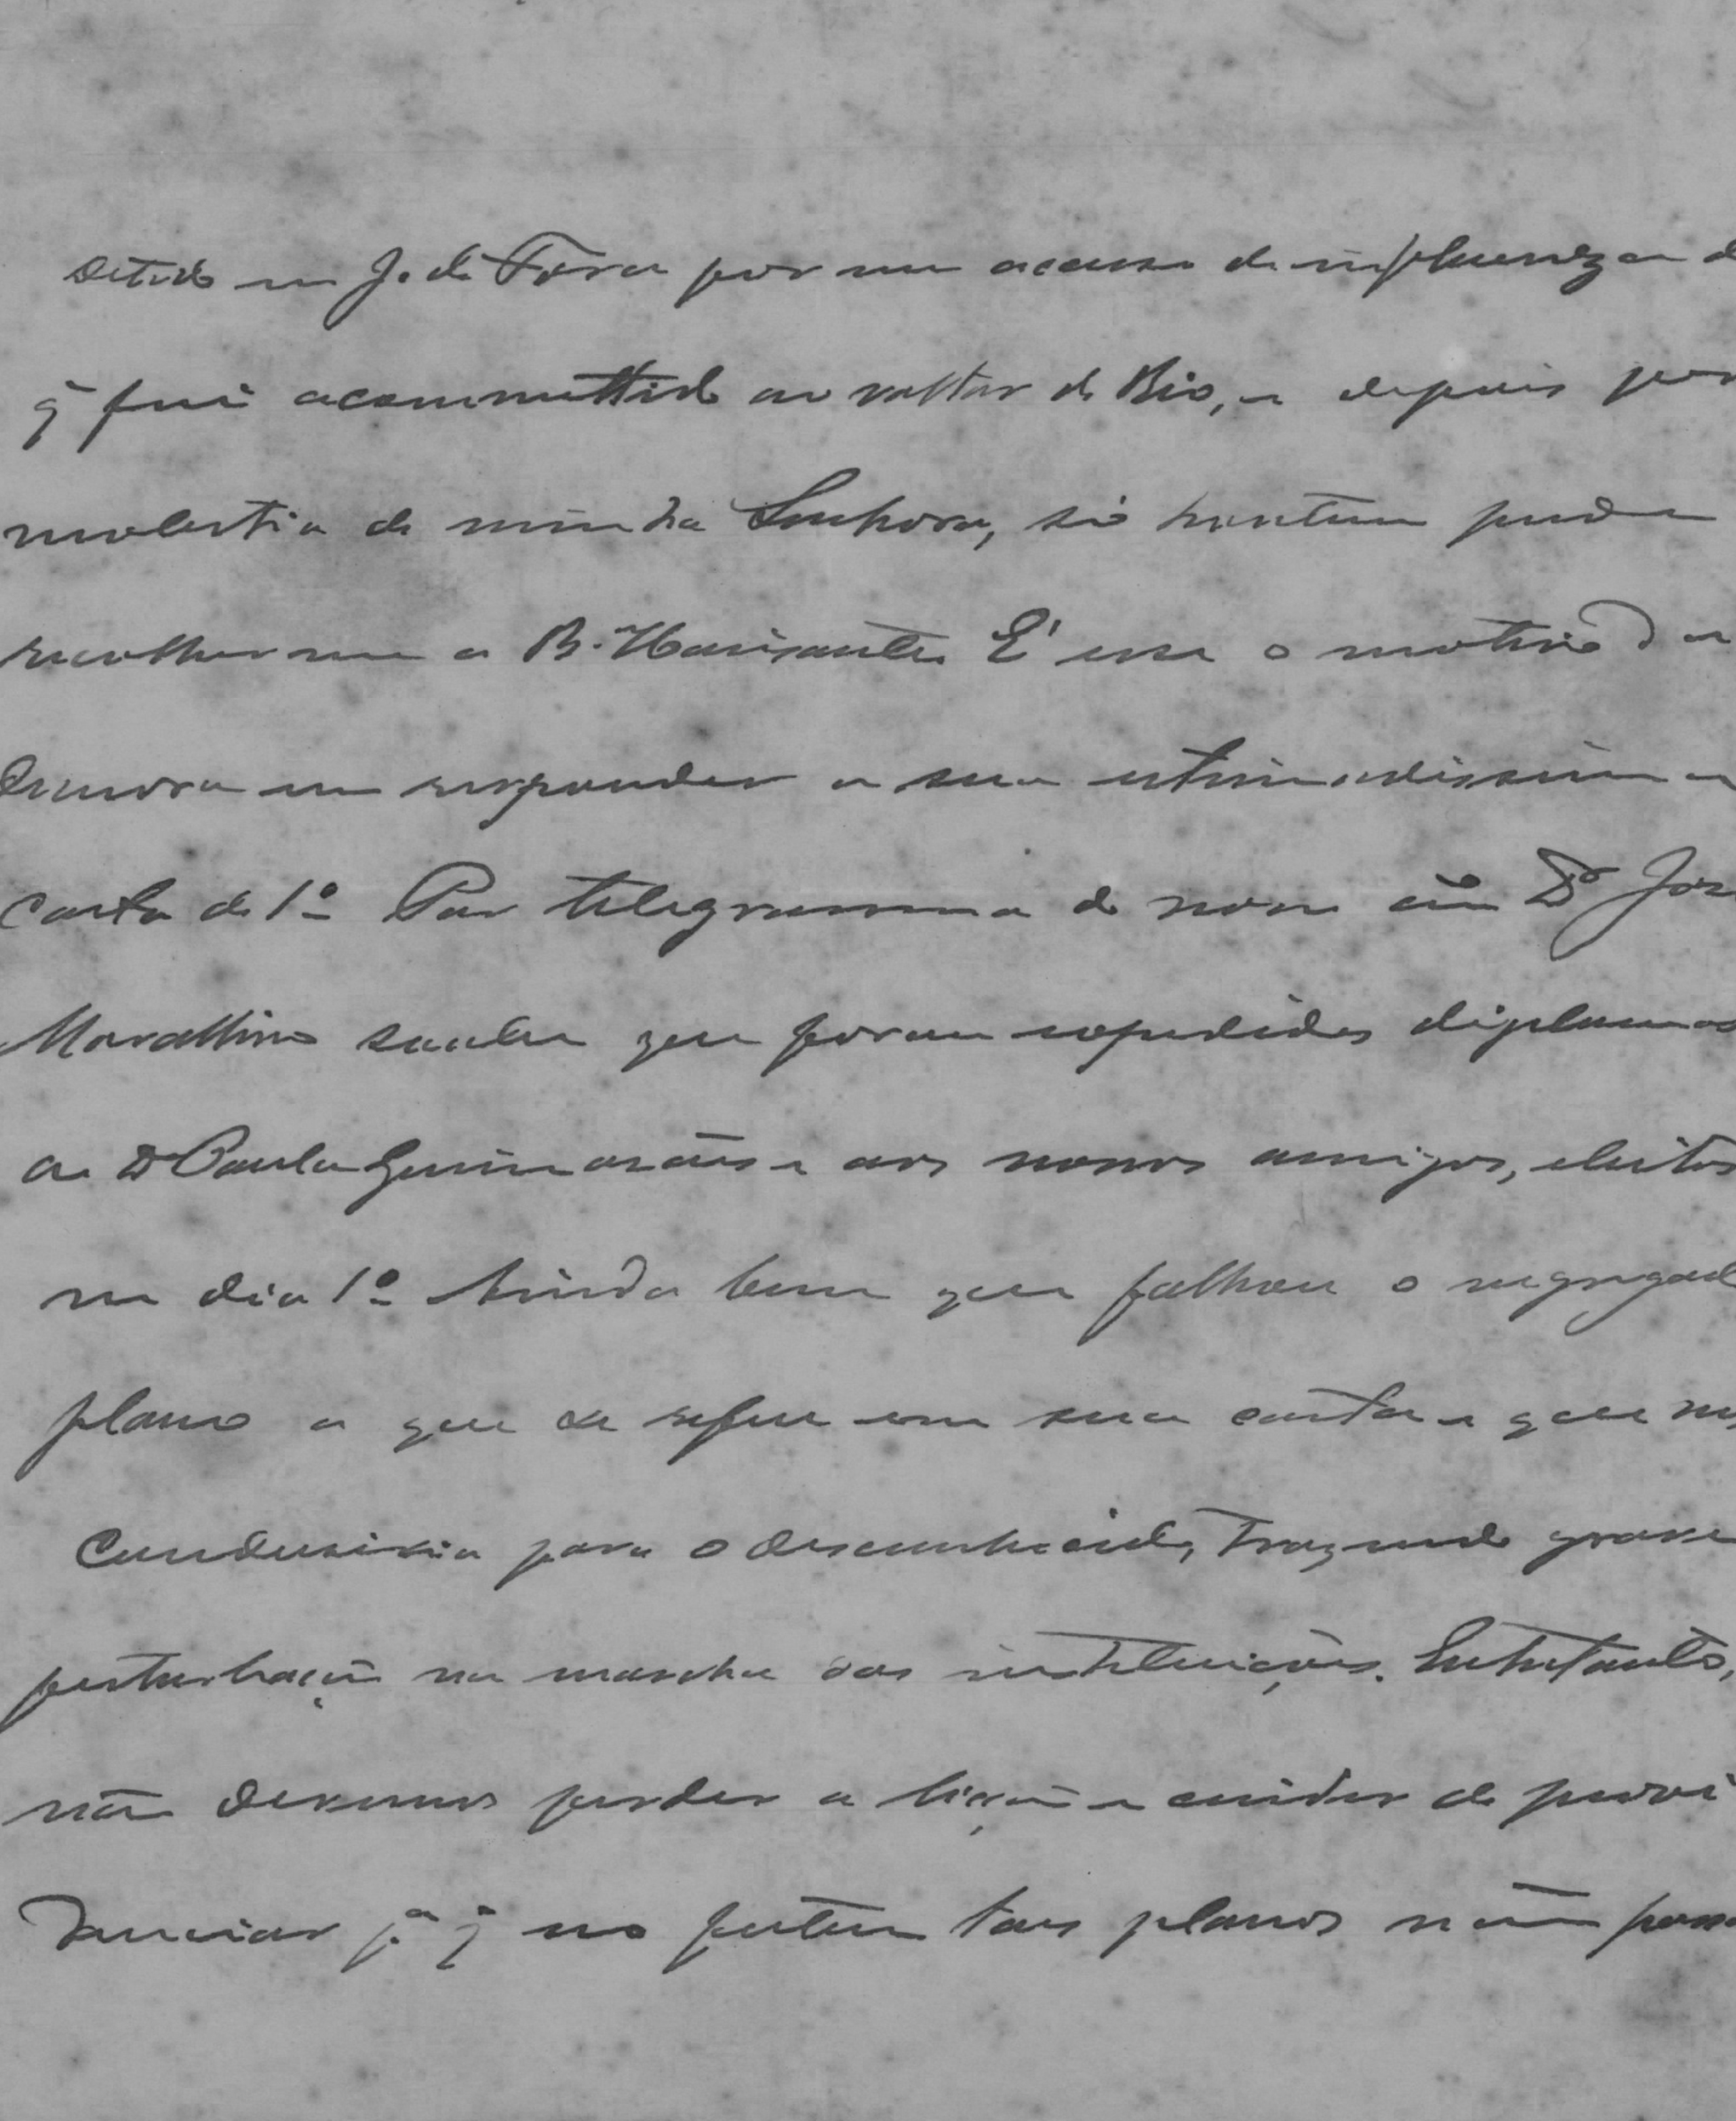 Detido em J. de Fóra por um acesso de influenza de
q̃ fui acommettido ao voltar do Rio, e depois por
molestia de minha Senhora, só hontem pude
recolher-me a B. Horisonte. E' essa o motivo da
demora em responder a sua estimadissima
carta de 1º Por telegramma do nosso am.º Dr José
Marcellino soube que foram expedidos diplomas
ao Dr Paula Guimarães e aos nossos amigos, eleitos
no dia 1º Ainda bem que falhou o
plano a que se refere em sua carta e que nos
conduziria para o desconhecido, trazendo grave
perturbação na marcha das instituições. Entretanto,
não devemos perder a lição e cuidar de provi
denciar p.ª q̃ no futuro taes planos não poss